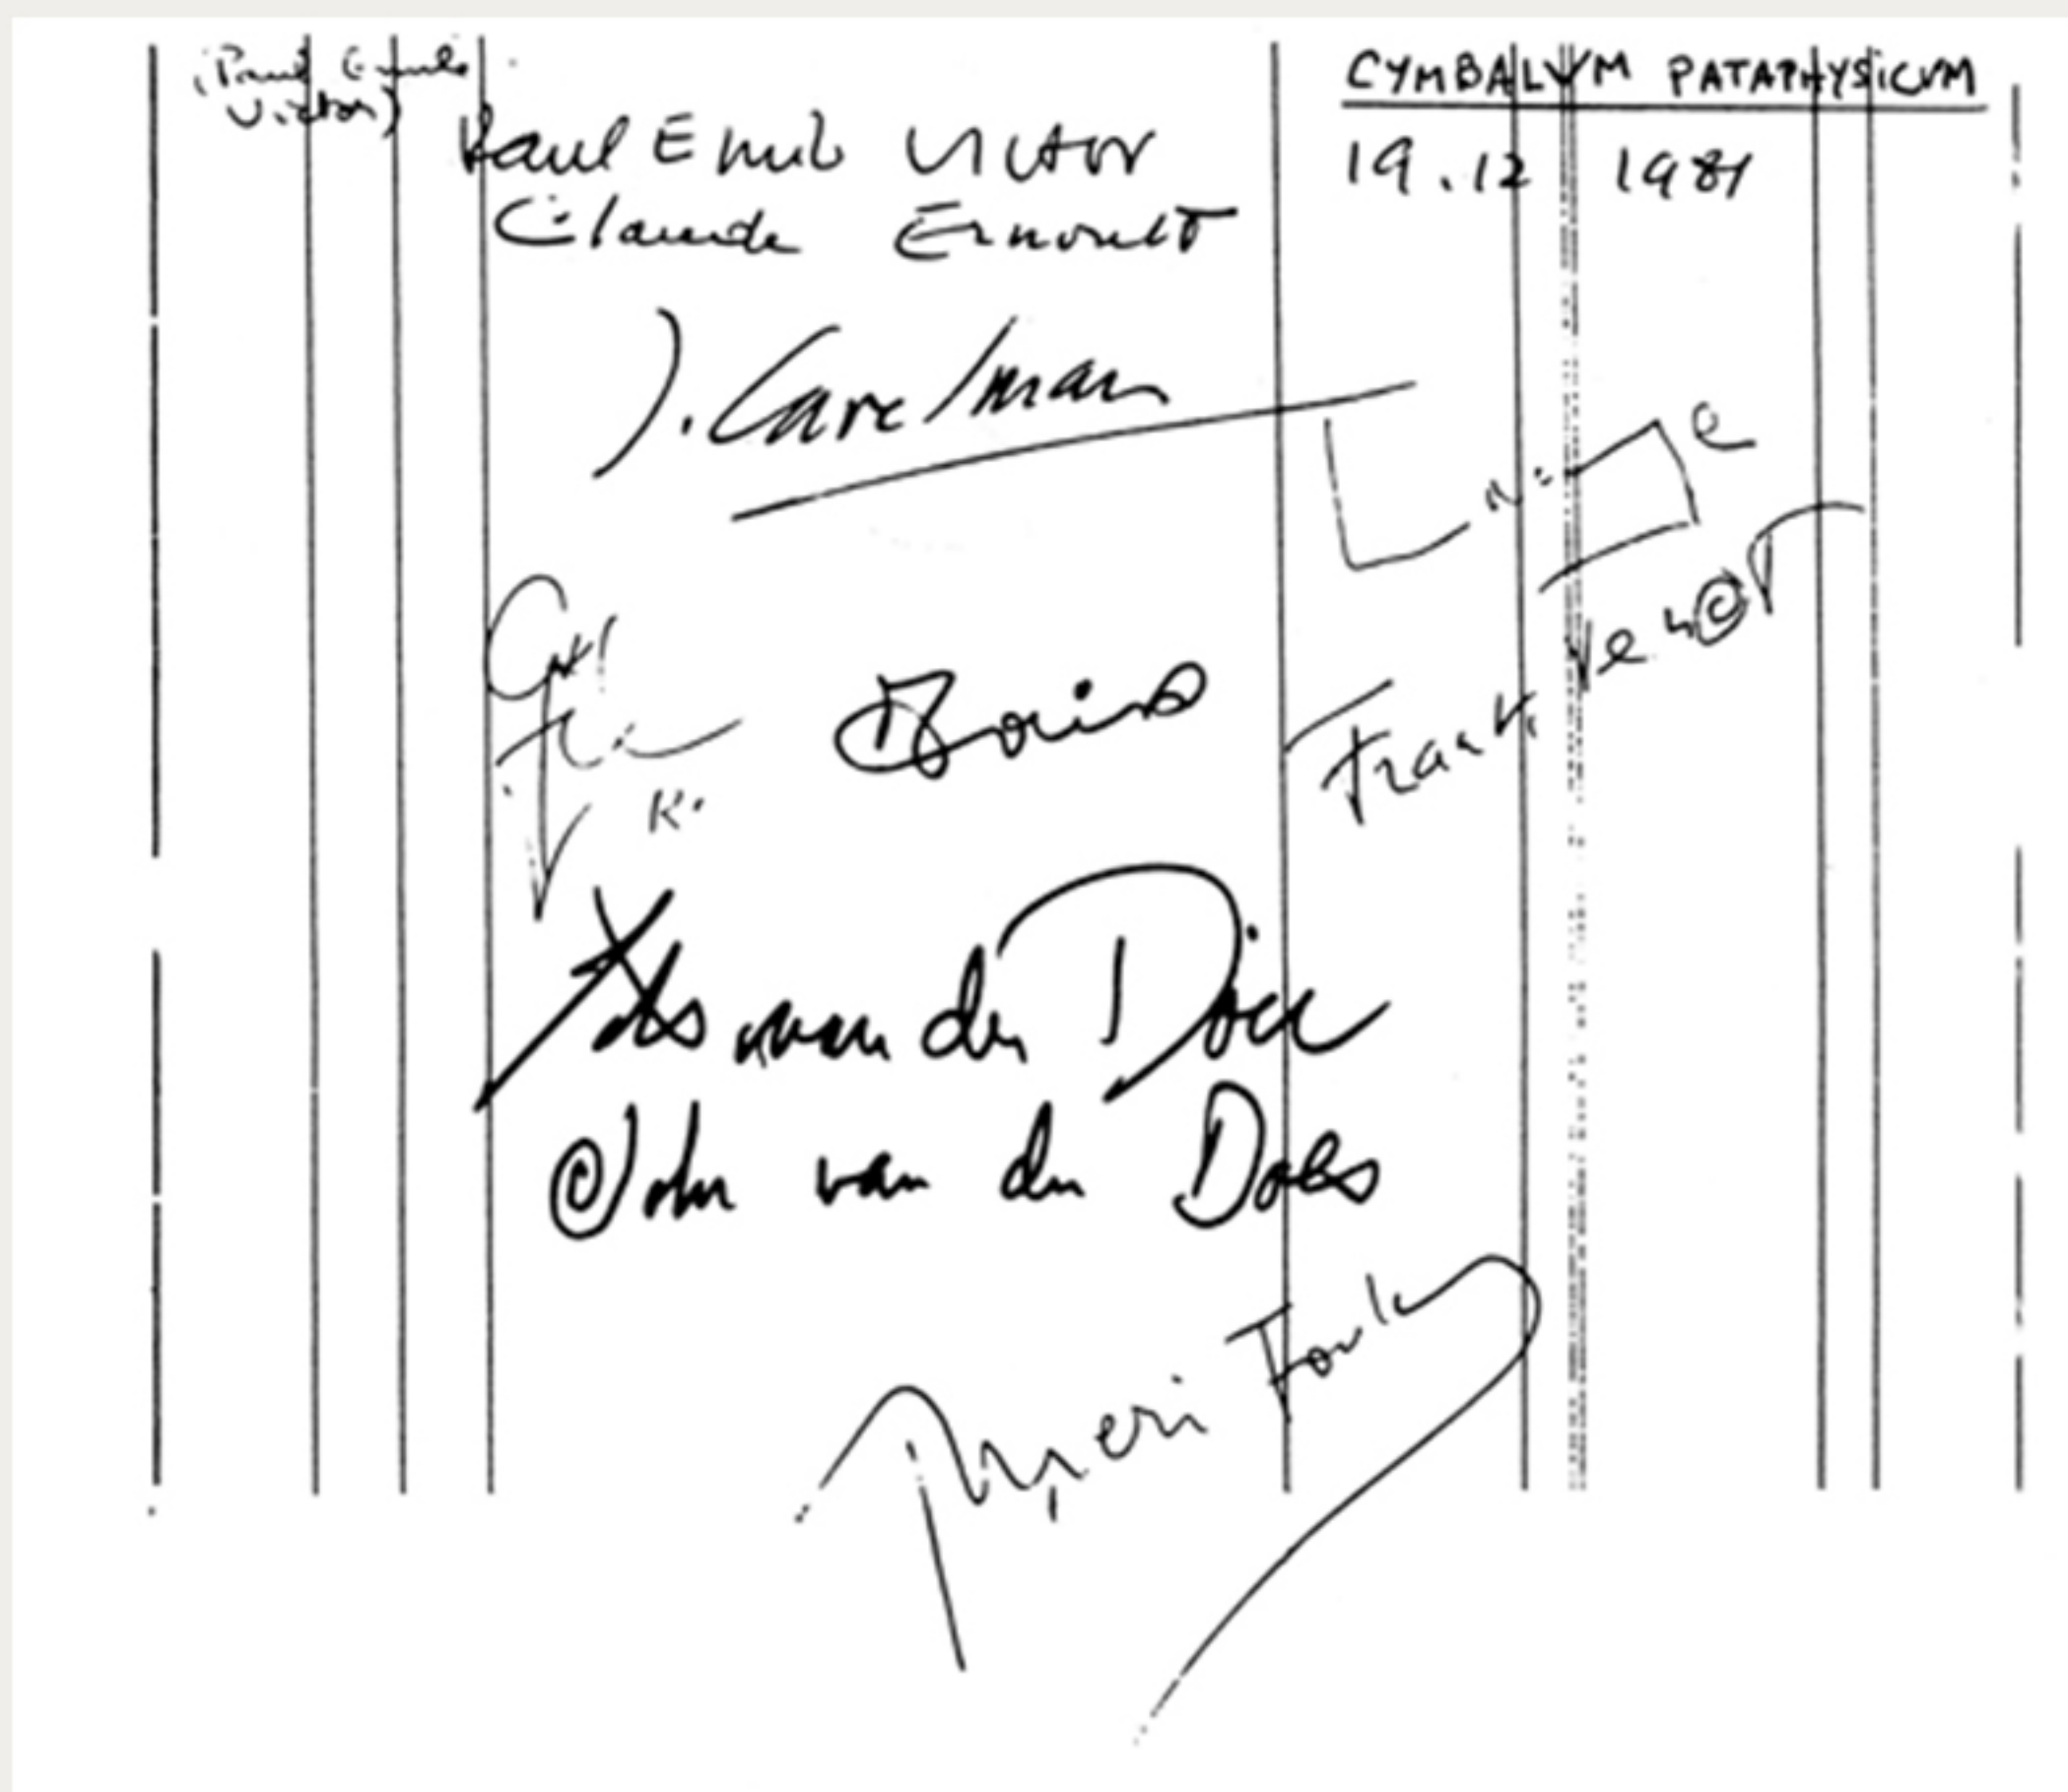 (Paul Emile
Victor)
Paul Emile VICTOR
Claude Ernoult
J. Carelman
CYMBALVM PATAPHYSICVM
19.12 1981
Line
Frank Tenot
K.
Boris
van der Doel
John van der Does
Thieri Foulc